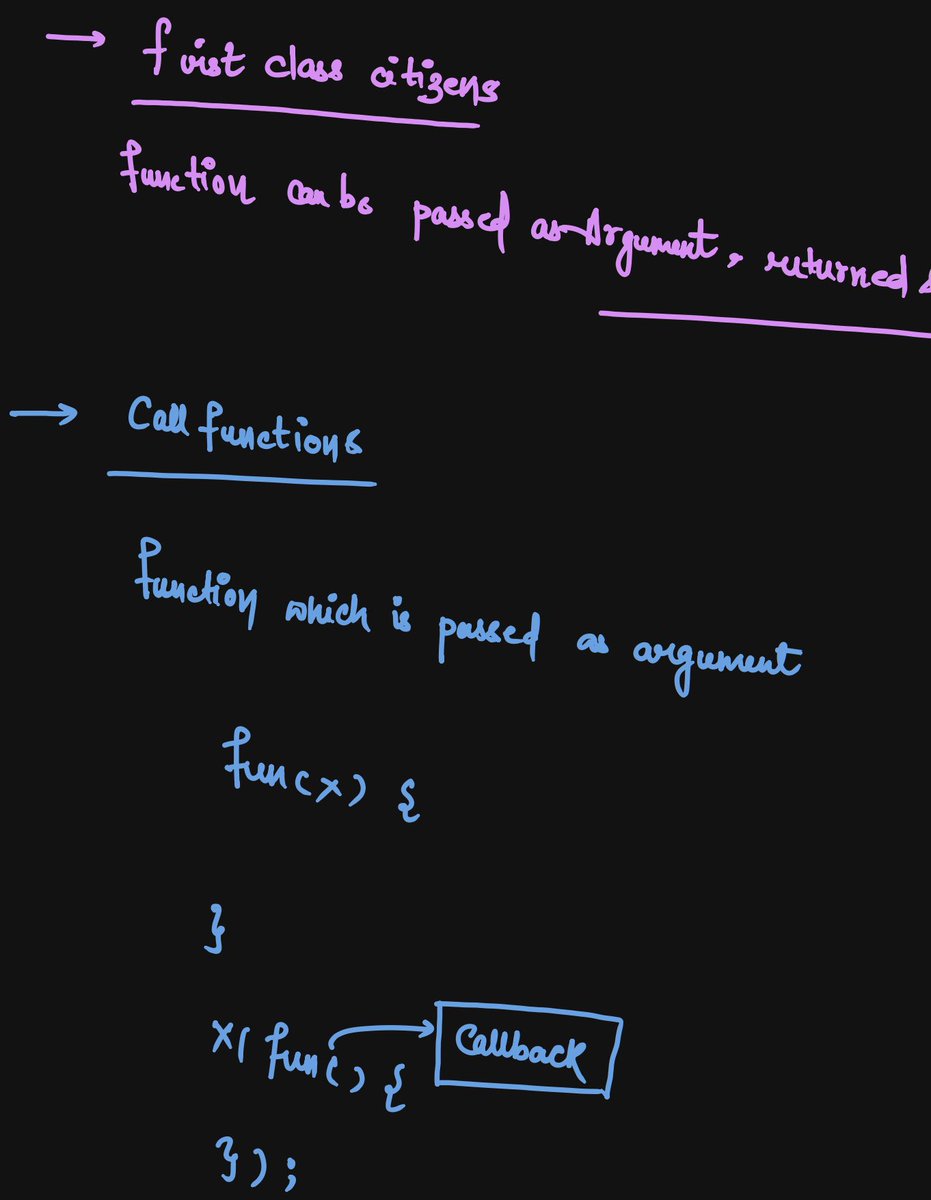 → first class citizens
function can be passed as Argument, returned
→ Call functions
function which is passed as argument
func(x) {
}
x( func() { Callback
});